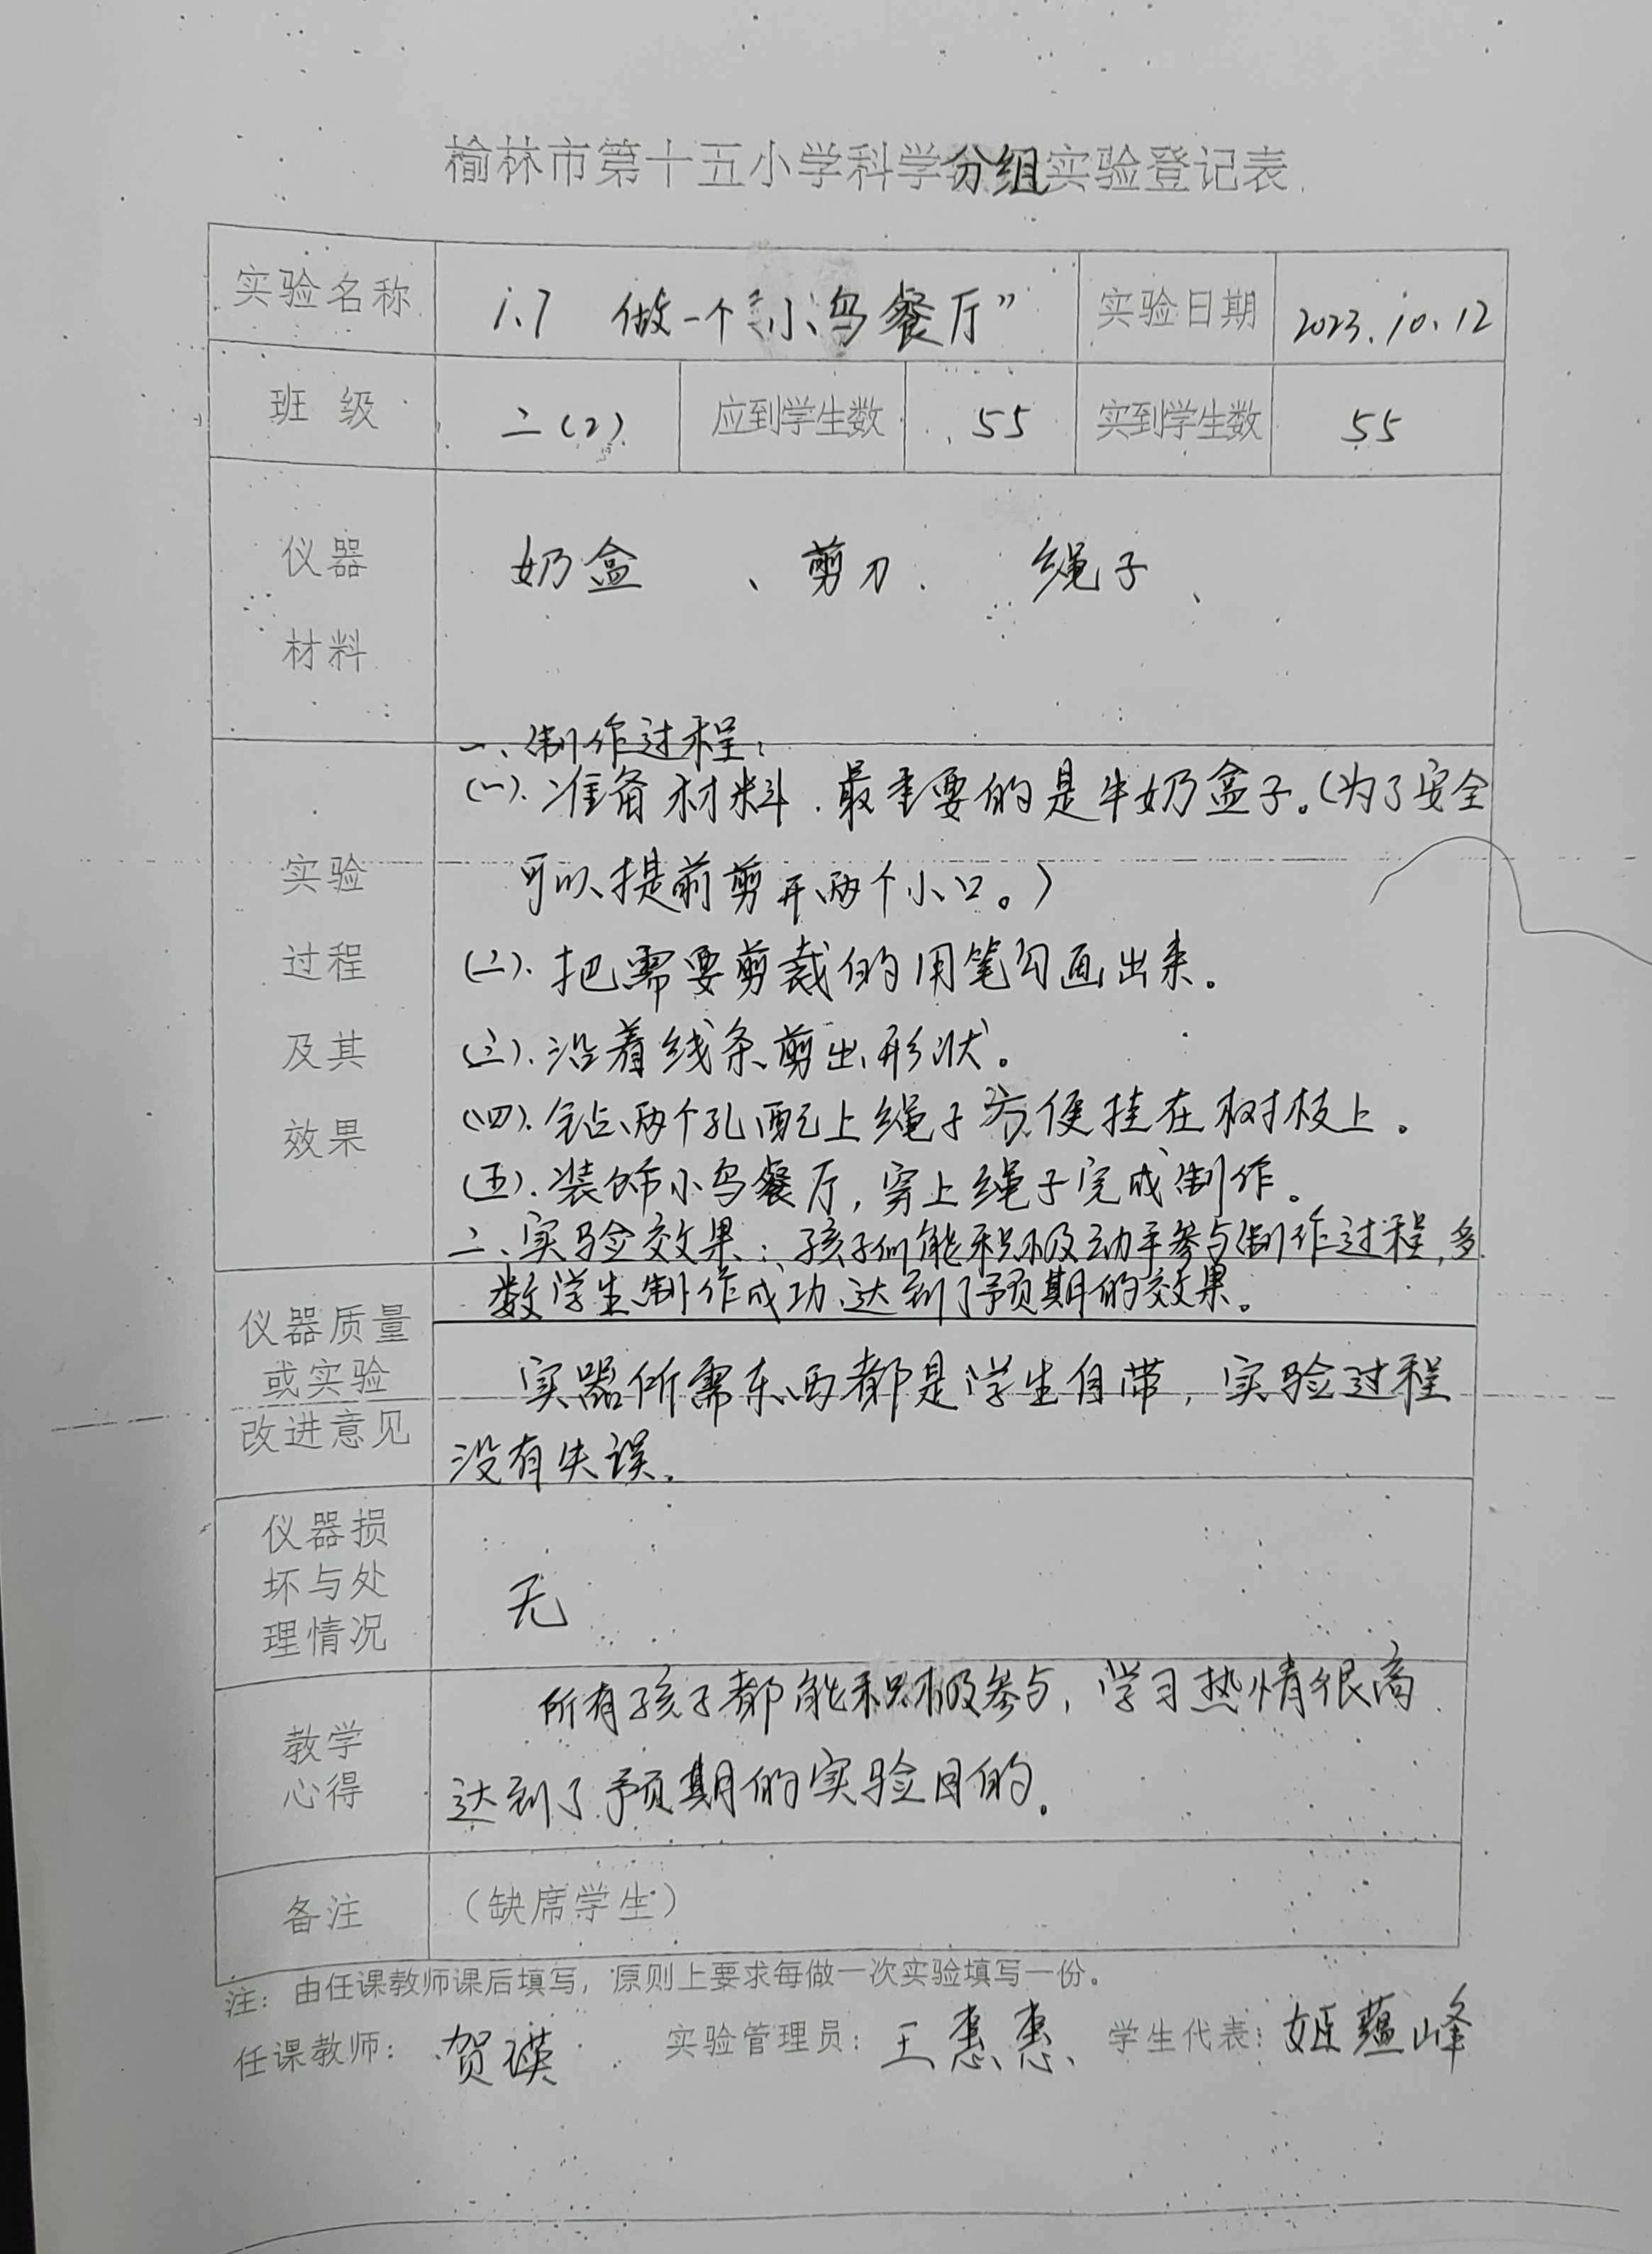 榆林市第十五小学科学分组实验登记表
实验名称 1.7 做一个“小鸟餐厅” 实验日期 2023.10.12
班级 二(2) 应到学生数 55 实到学生数 55
仪器
材料
奶盒、剪刀、绳子、
实验
过程
及其
效果
一、制作过程：
(一).准备材料.最重要的是牛奶盒子。(为了安全
可以提前剪开两个小口。)
(二).把需要剪裁的用笔勾画出来。
(三).沿着线条剪出形状。
(四).钻两个孔配上绳子方便挂在树枝上。
(五).装饰小鸟餐厅，穿上绳子完成制作。
二、实验效果：孩子们能积极动手参与制作过程，多
数学生制作成功、达到了预期的效果。
仪器质量
或实验
改进意见
实器所需东西都是学生自带，实验过程
没有失误.
仪器损
坏与处
理情况
无
教学
心得
所有孩子都能积极参与，学习热情很高
达到了预期的实验目的。
备注 （缺席学生）
注：由任课教师课后填写，原则上要求每做一次实验填写一份。
任课教师：贺瑛 实验管理员：王惠惠 学生代表：姬蕴峰